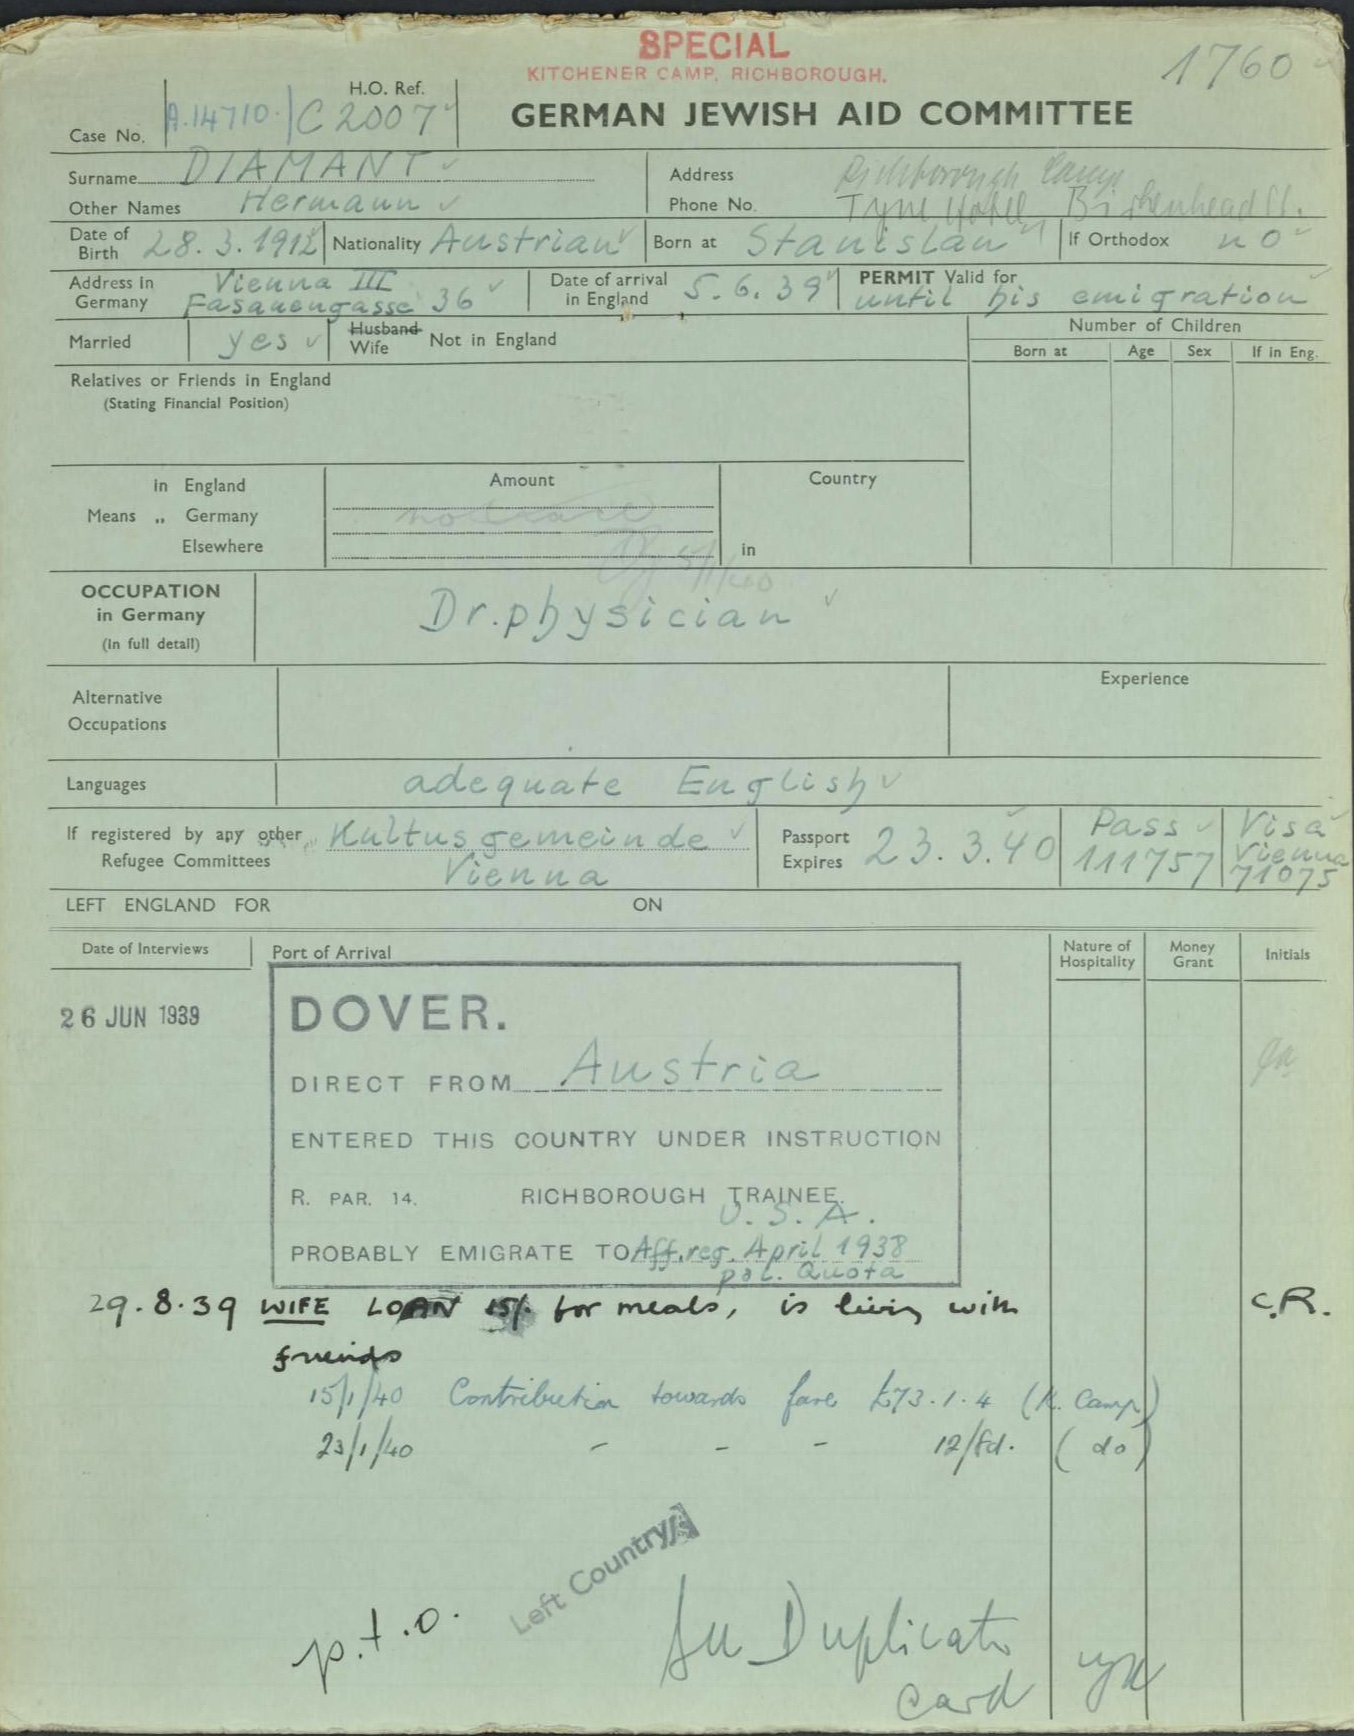 SPECIAL
KITCHENER CAMP, RICHBOROUGH.
1760
H.O. Ref.
Case No. A.14710. C2007
GERMAN JEWISH AID COMMITTEE
Surname DIAMANT
Other Names Hermann
Address Richborough Camp
Phone No. Tyne Hotel, Birkenhead St.
Date of Birth 28.3.1912 Nationality Austrian Born at Stanislau If Orthodox no
Address in Germany Vienna III Fasanengasse 36
Date of arrival in England 5.6.39
PERMIT Valid for until his emigration
Married yes Husband Wife Not in England
Number of Children
Born at Age Sex If in Eng.
Relatives or Friends in England
(Stating Financial Position)
Amount Country
in England
Means „ Germany
Elsewhere in
5/1/40
OCCUPATION
in Germany
(in full detail)
Dr. physician
Experience
Alternative
Occupations
Languages adequate English
If registered by any other Refugee Committees Kultusgemeinde Vienna
Passport Expires 23.3.40
Pass 111757
Visa Vienna 71075
LEFT ENGLAND FOR ON
Date of Interviews Port of Arrival Nature of Hospitality Money Grant Initials
26 JUN 1939
DOVER.
DIRECT FROM Austria
ENTERED THIS COUNTRY UNDER INSTRUCTION
R. PAR. 14. RICHBOROUGH TRAINEE.
U.S.A.
PROBABLY EMIGRATE TO Aff. reg. April 1938
pol. Quota
29.8.39 WIFE LOAN 15/- for meals, is living with C.R.
friends
15/1/40 Contribution towards fare £73.1.4 (K. Camp)
23/1/40 - - - 12/8d. (do)
Left Country
p.t.o.
See Duplicate
card